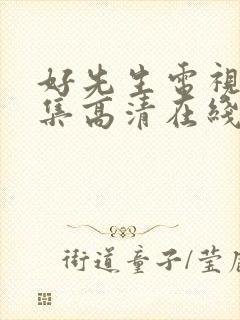 好先生電視
集高清在綫
街道童子/莹